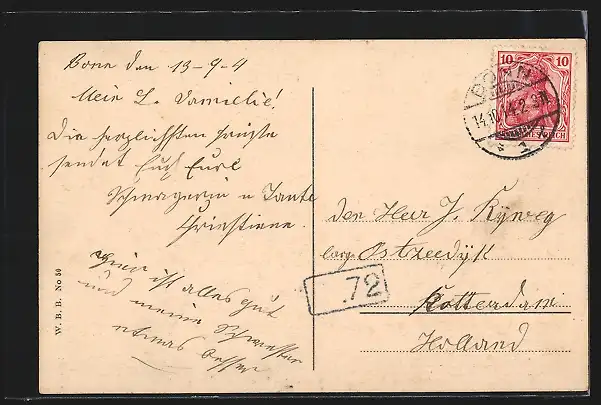 Bonn den 13-9-4
Mein L. Familie!
Die herzlichsten Grüße
sendet Euch Eure
Schwägerin u Tante
Christiene.
Hier ist alles gut
und meine Schwester
etwas besser
W. B. B. No 50
10 10
BONN
14.10.14.2-3N
1
den Heer J.
Ostzeedijk
Rotterdam
Holland
72